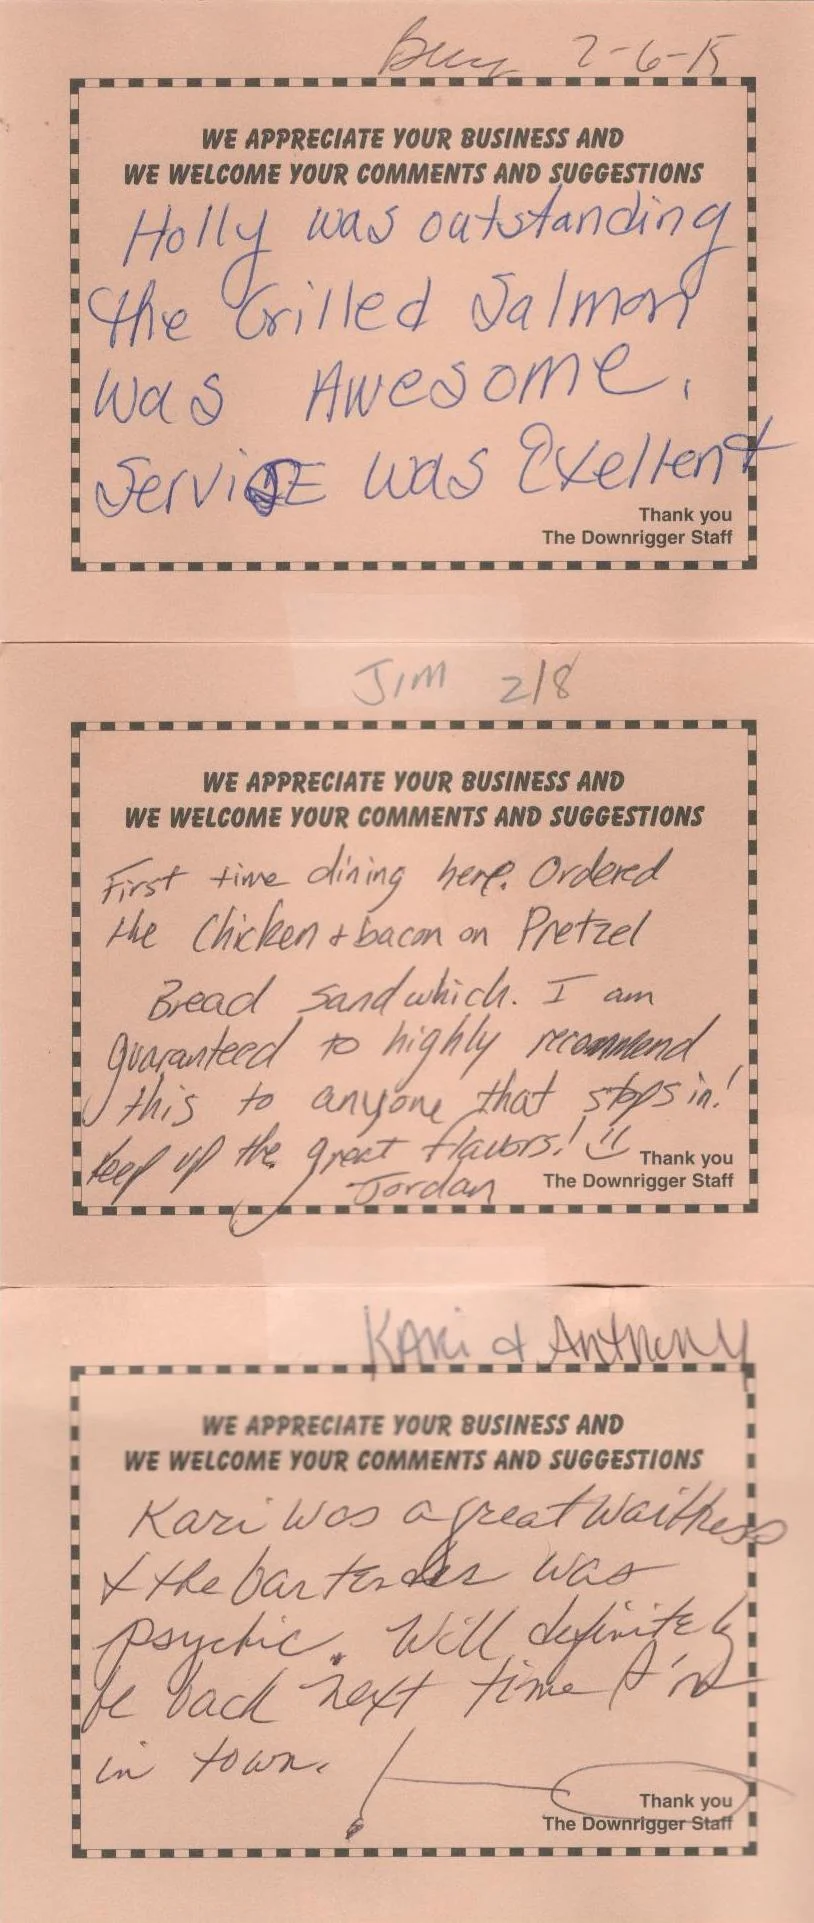 2-6-15
WE APPRECIATE YOUR BUSINESS AND
WE WELCOME YOUR COMMENTS AND SUGGESTIONS
Holly was outstanding
the Grilled Salmon
was Awesome.
ServiSE was Exellent
Thank you
The Downrigger Staff
JIM 2/8
WE APPRECIATE YOUR BUSINESS AND
WE WELCOME YOUR COMMENTS AND SUGGESTIONS
First time dining here. Ordered
the Chicken + bacon on Pretzel
Bread sandwhich. I am
guaranteed to highly recommend
this to anyone that stops in!
Keep up the great flavors! :)
Jordan
Thank you
The Downrigger Staff
KARi & AnthonY
WE APPRECIATE YOUR BUSINESS AND
WE WELCOME YOUR COMMENTS AND SUGGESTIONS
Kari was a great Waitress
& the bartender was
psychic. Will definitely
be back next time I'm
in town.
Thank you
The Downrigger Staff